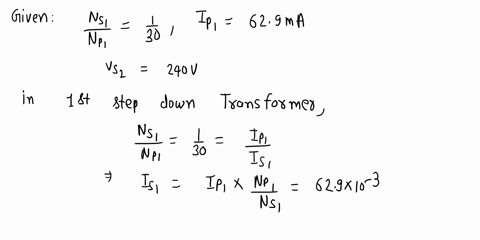 Given: N_S1/N_P1 = 1/30, I_P1 = 62.9mA
V_S2 = 240V
in 1st step down Transformer,
N_S1/N_P1 = 1/30 = I_P1/I_S1
⇒ I_S1 = I_P1 × N_P1/N_S1 = 62.9×10^-3